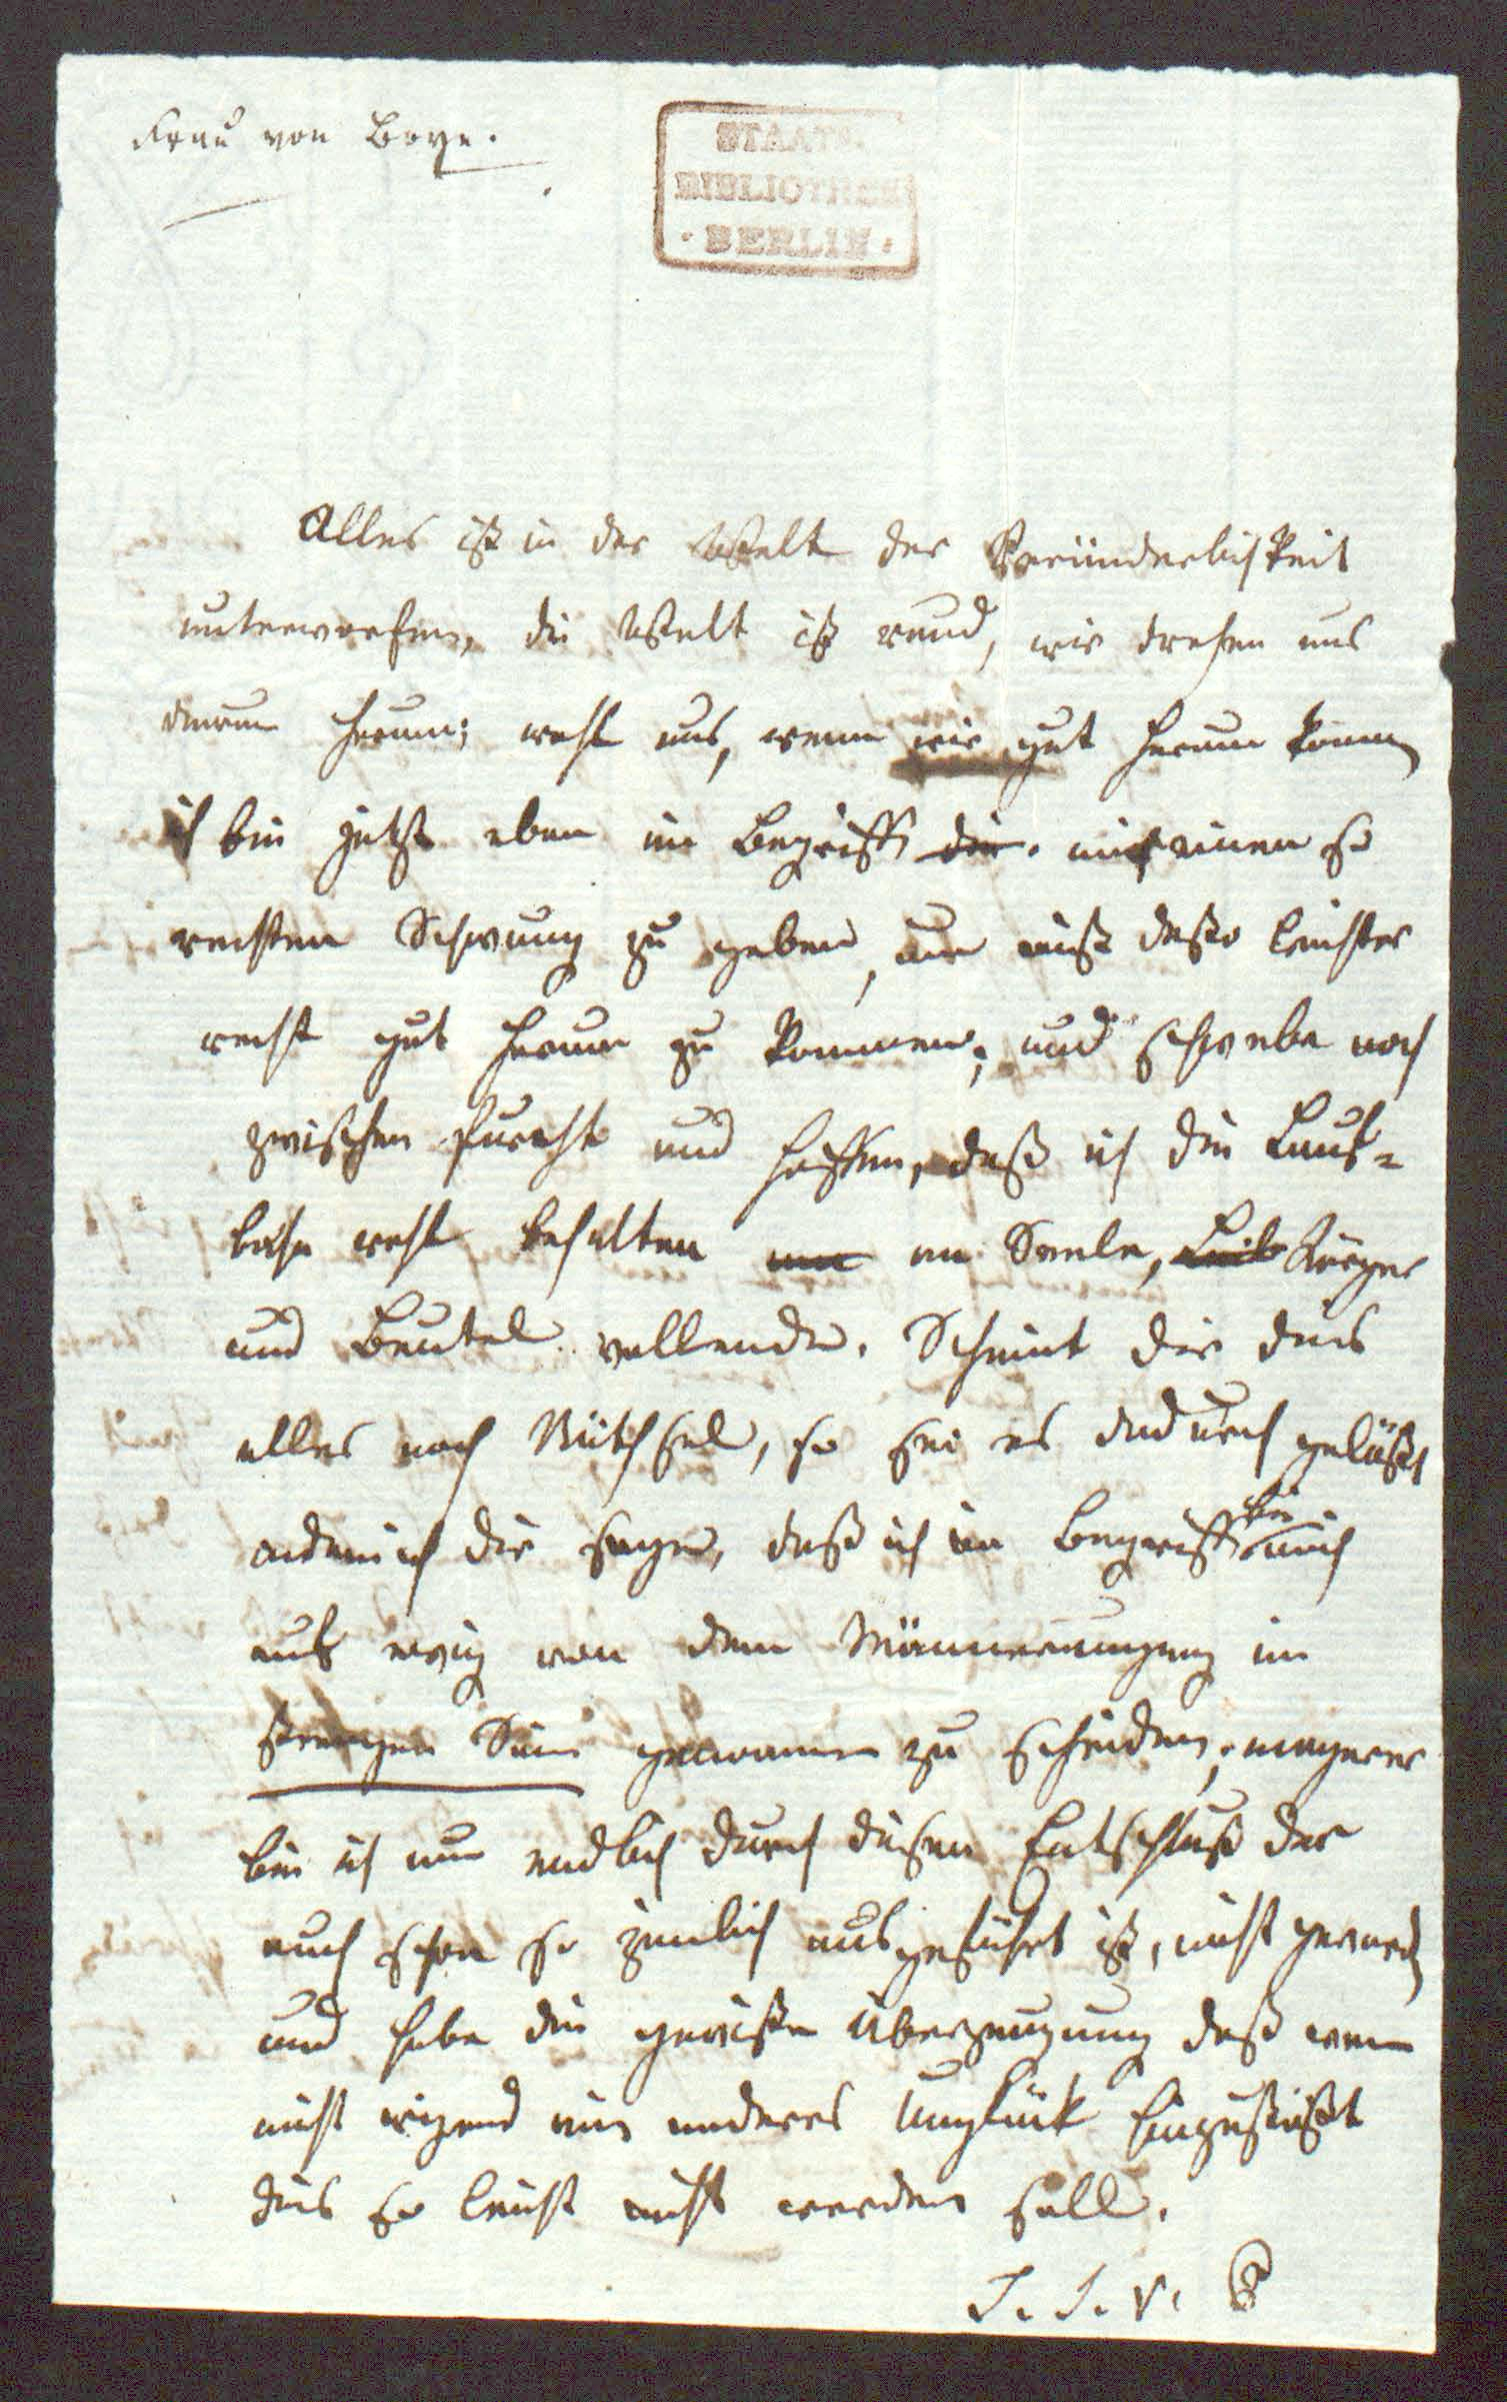 Frau von Boye.
STAATS-
BIBLIOTHEK
· BERLIN ·
Alles ist in der Welt der Veränderlichkeit
unterworfen, die Welt ist rund, wir drehen uns
darum herum; wohl uns, wenn wir gut herum komen
ich bin jetzt eben im Begriff die mir einen so
rechten Schwung zu geben, um nicht desto leichter
recht gut herum zu kommen; und schwebe noch
zwischen Furcht und Hoffen, daß ich die Lauf-
bahn wohl behalten an an Seele, Leib Körper
und Beutel vollende. Scheint dir dies
alles noch Räthsel, so sei es dadurch gelößt
indem ich dir sage, daß ich im Begriff bin mich
auf ewig von dem Männerumgang im
strengen Sinn genommen zu scheiden, magerer
bin ich nun endlich durch diesen Entschluß der
auch schon so zimlich ausgeführt ist, nicht geworden
und habe die gewisse Überzeugung daß wenn
nicht irgend ein anderes Unglück hinzustößt
dies so leicht nicht werden soll.
S. S. v. B